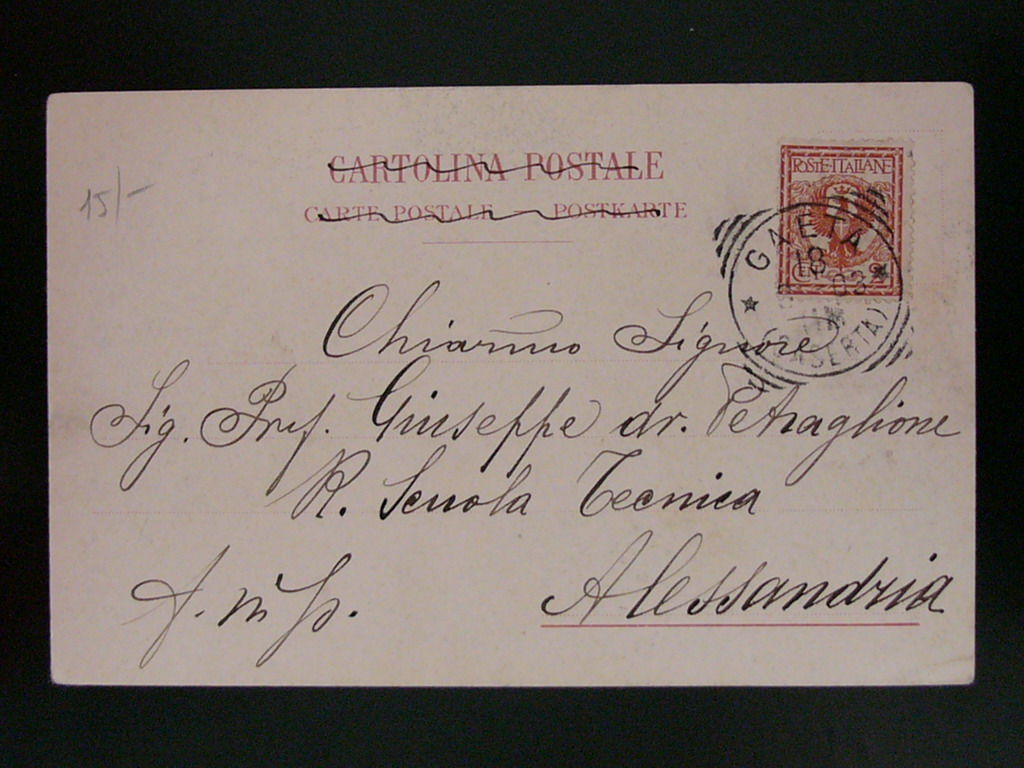 15/-
CARTOLINA POSTALE
CARTE POSTALE — POSTKARTE
POSTE·ITALIANE
GAETA
18
03
(CASERTA)
Chiarmo Signore
Sig. Prof. Giuseppe dr. Petraglione
R. Scuola Tecnica
Alessandria